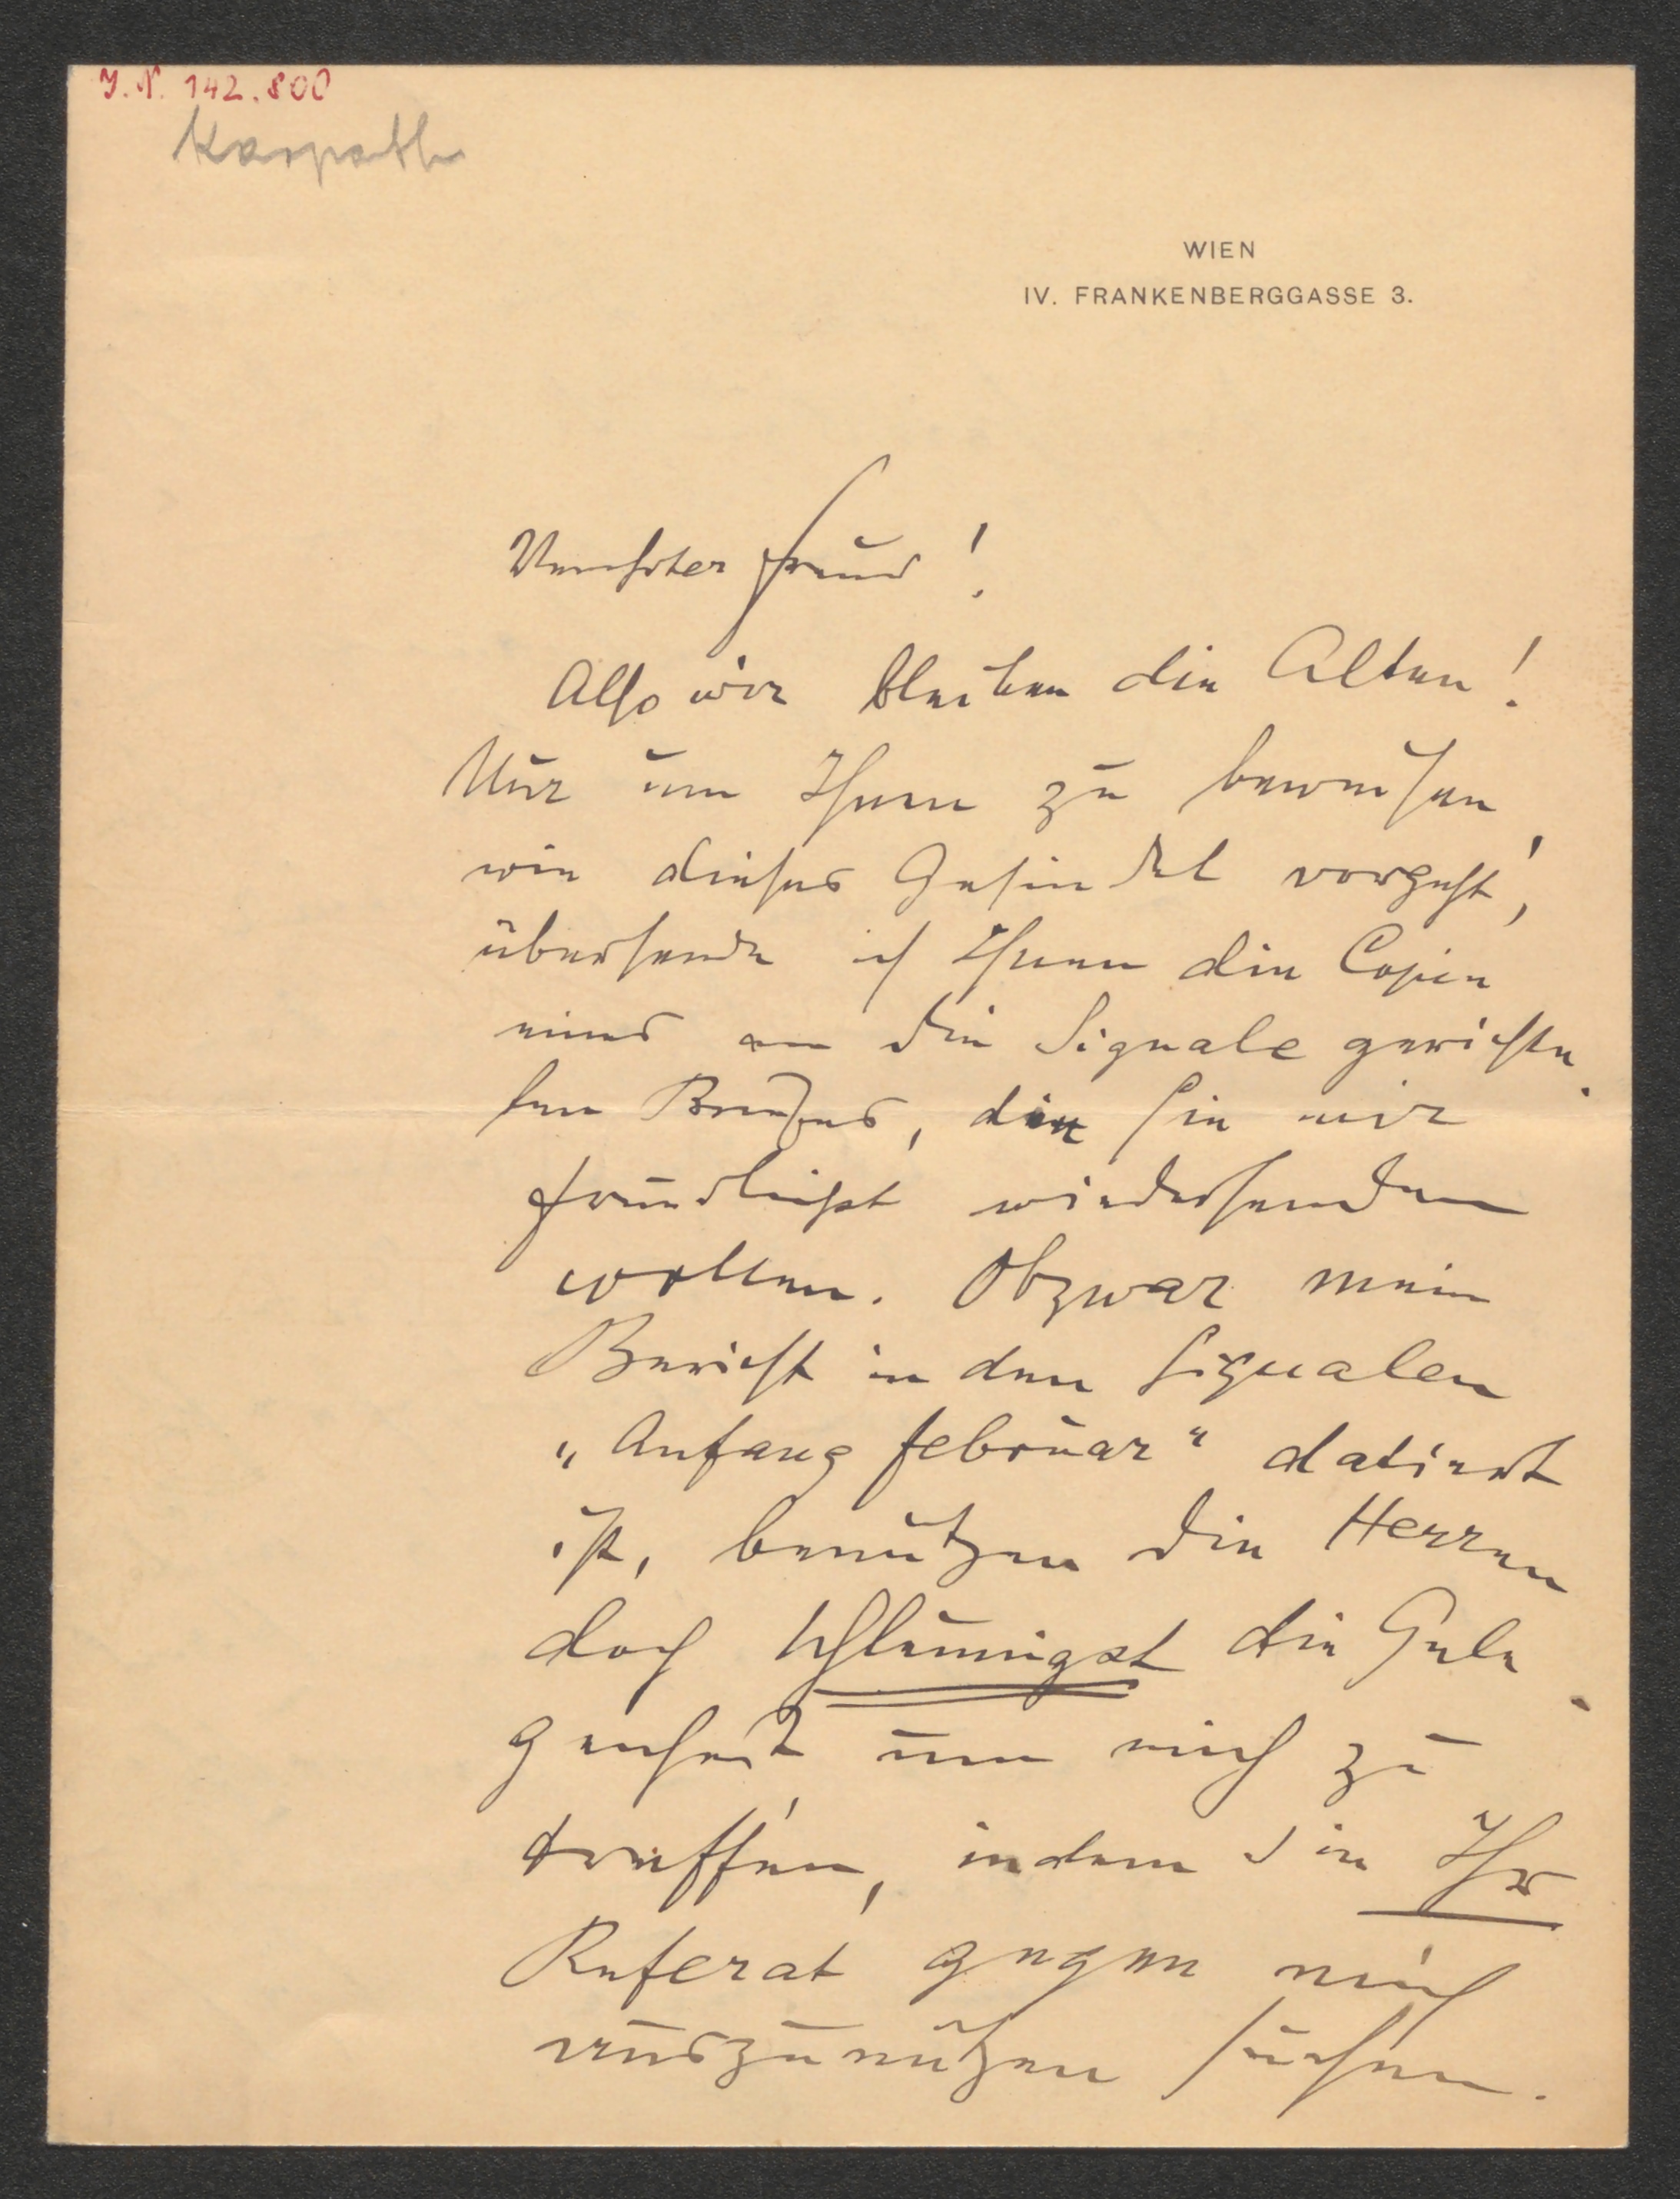 J.N. 142.800
Karpath
WIEN
IV. FRANKENBERGGASSE 3.
Verehrter Freund!
Also wir bleiben die Alten!
Nur um Ihnen zu beweisen
wie dieses Gesindel vorgeht,
übersende ich Ihnen die Copien
eines an die Signale gerichte
ten Briefes, die Sie mir
freundlichst wiedersenden
wollen. Obzwar mein
Bericht in den Signalen
„Anfang Februar" datiert
ist, benutzen die Herren
doch schleunigst die Gele
genheit um mich zu
treffen, indem sie Ihr
Referat gegen mich
auszunützen suchen.